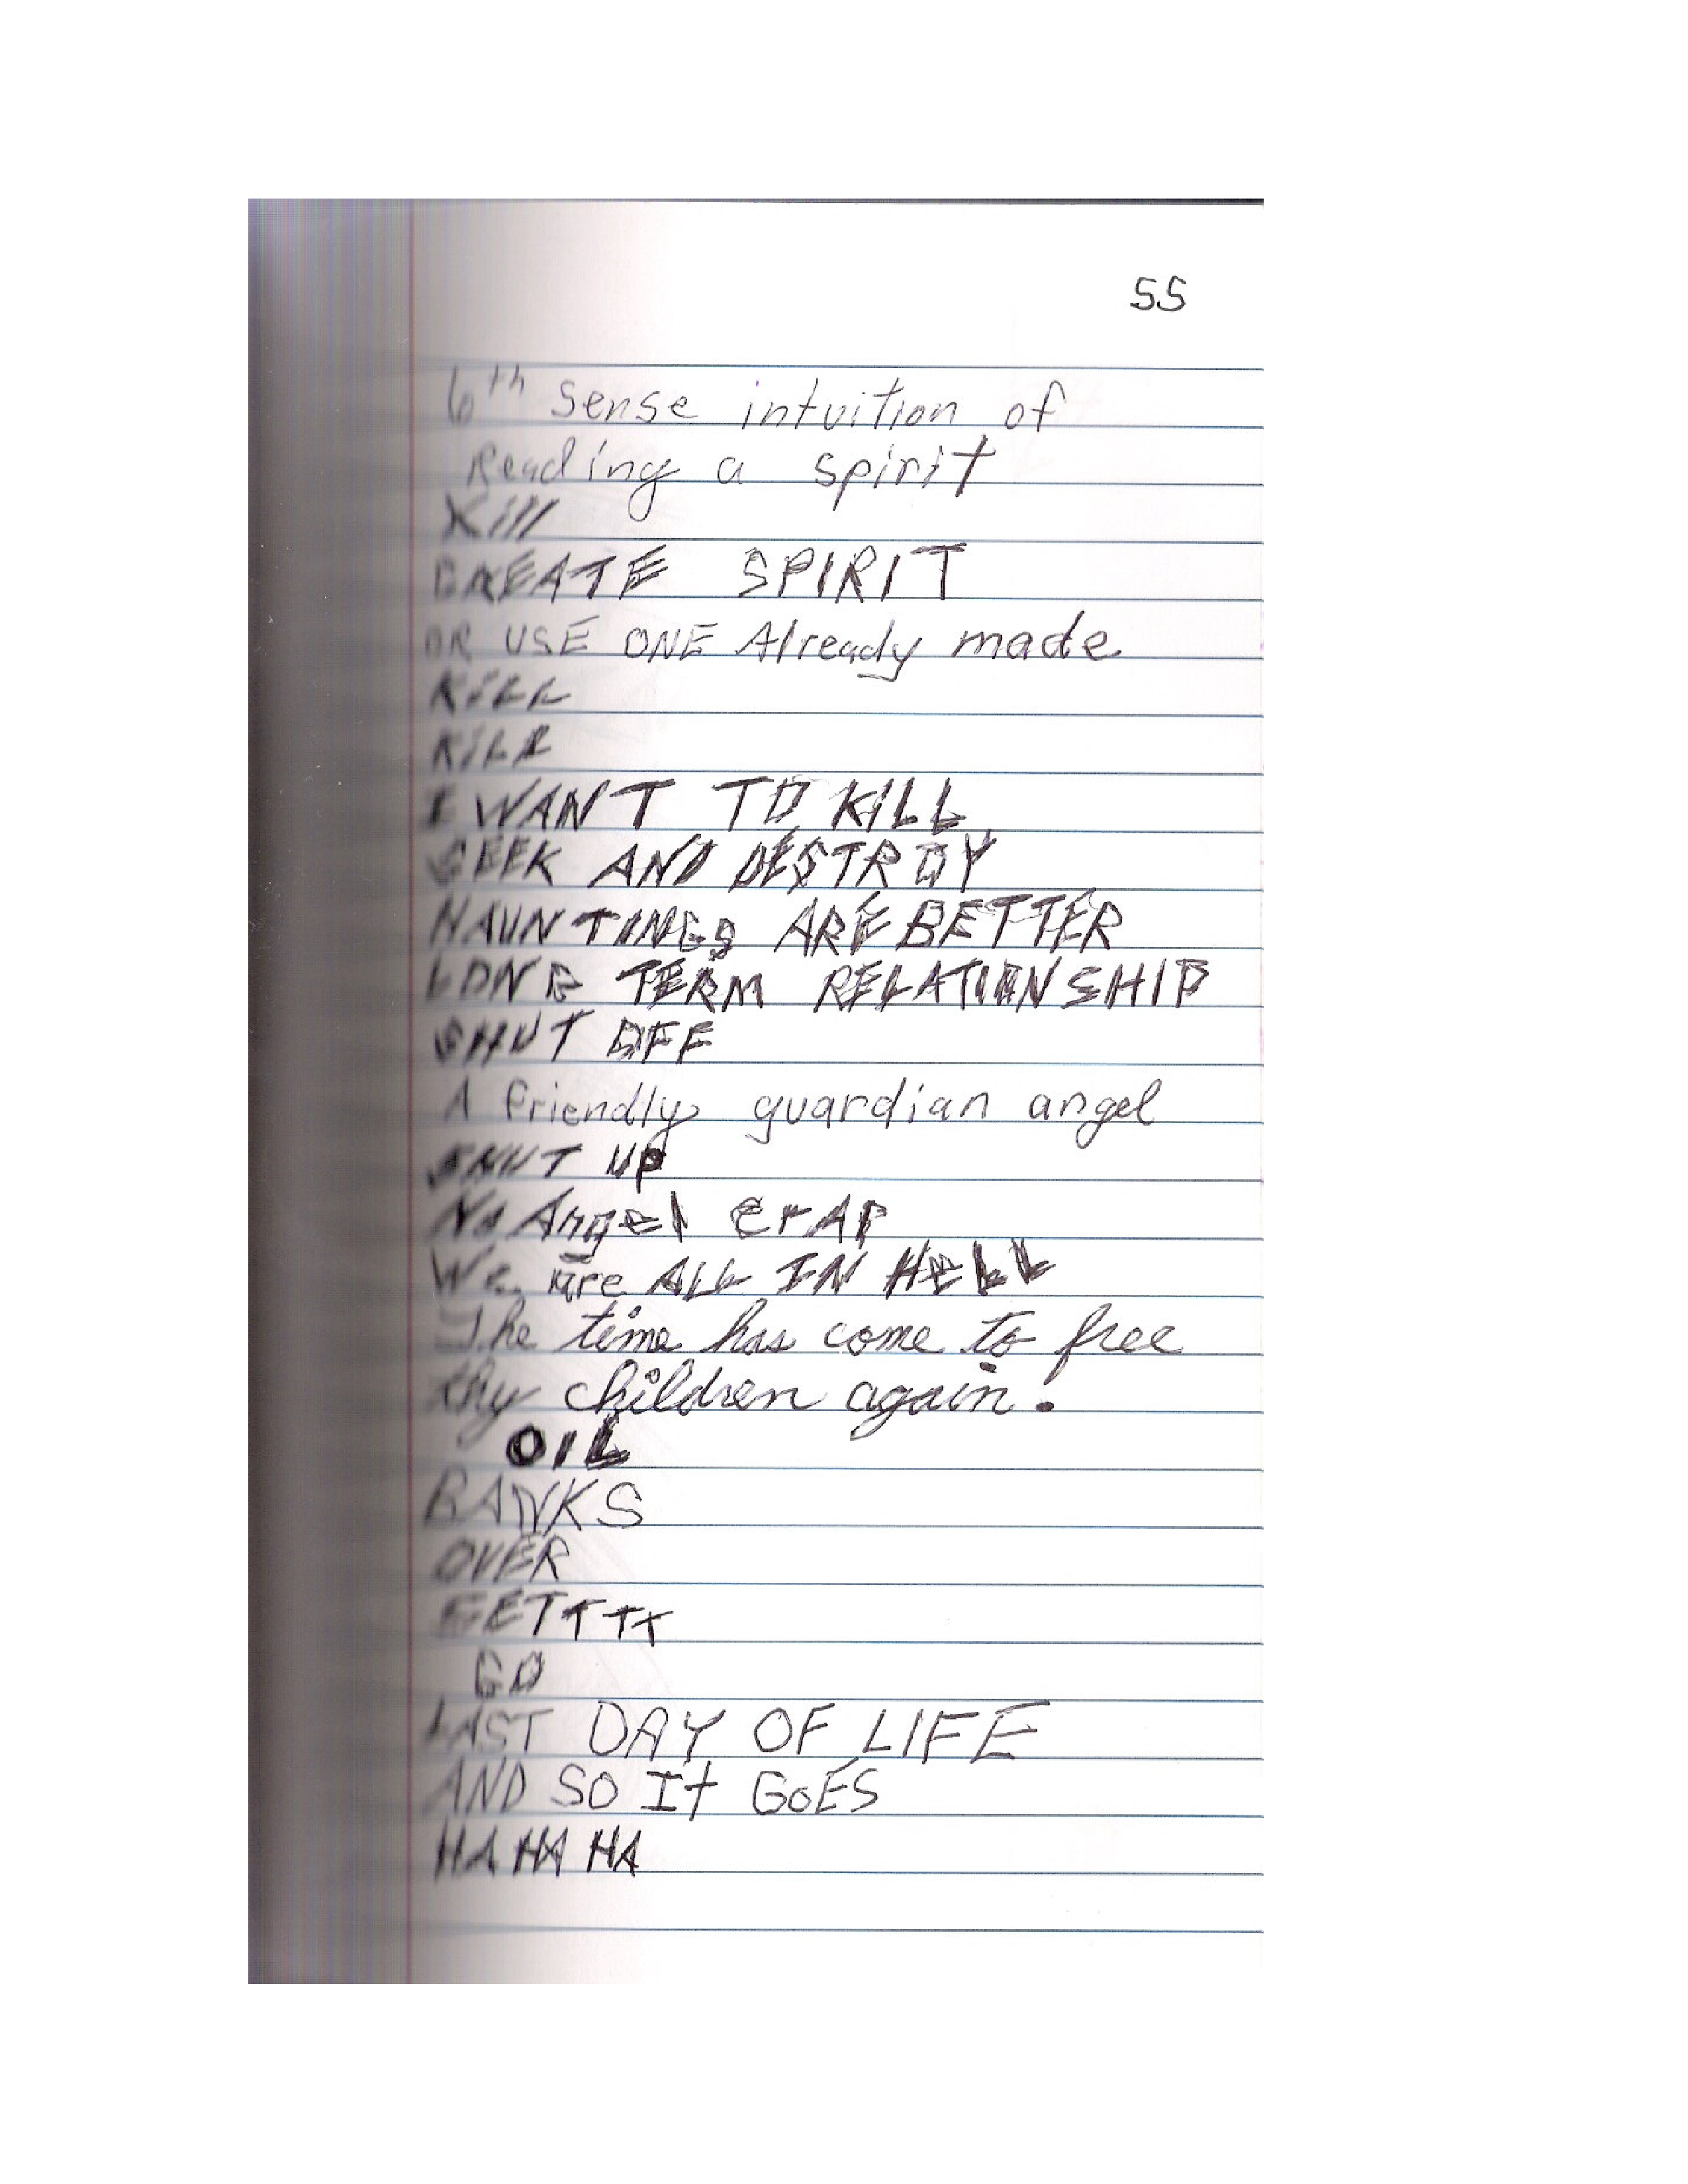 55
6th sense intuition of
Reading a spirit
Kill
CREATE SPIRIT
OR USE ONE Already made
KiLL
KiLL
I WANT TO KILL
SEEK AND DESTROY
HAUNTINGS ARE BETTER
LONG TERM RELATIONSHIP
SHUT OFF
A friendly guardian angel
SHUT UP
No Angel CrAP
We are ALL IN HELL
The time has come to free
thy children again.
OIL
BANKS
OVER
GETTTT
GO
LAST DAY OF LIFE
AND SO It GoES
HA HA HA